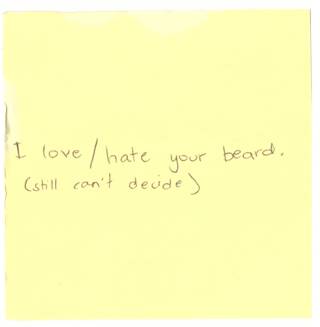 I love/hate your beard.
(still can't decide)